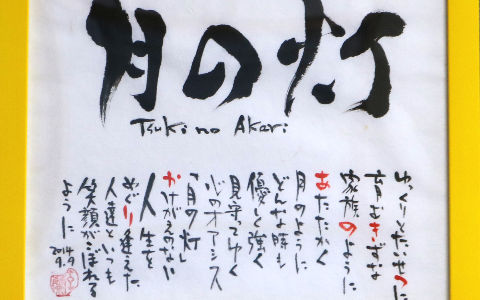 月の灯
Tsuki no Akari
ゆっくりとたいせつに
育むきずな
家族のように
あたたかく
月のように
どんな時も
優しく強く
見守てゆく
心のオアシス
「月の灯」
かけがえのない
人生を
めぐり逢えた
人達といつも
笑顔がこぼれる
ように
2014